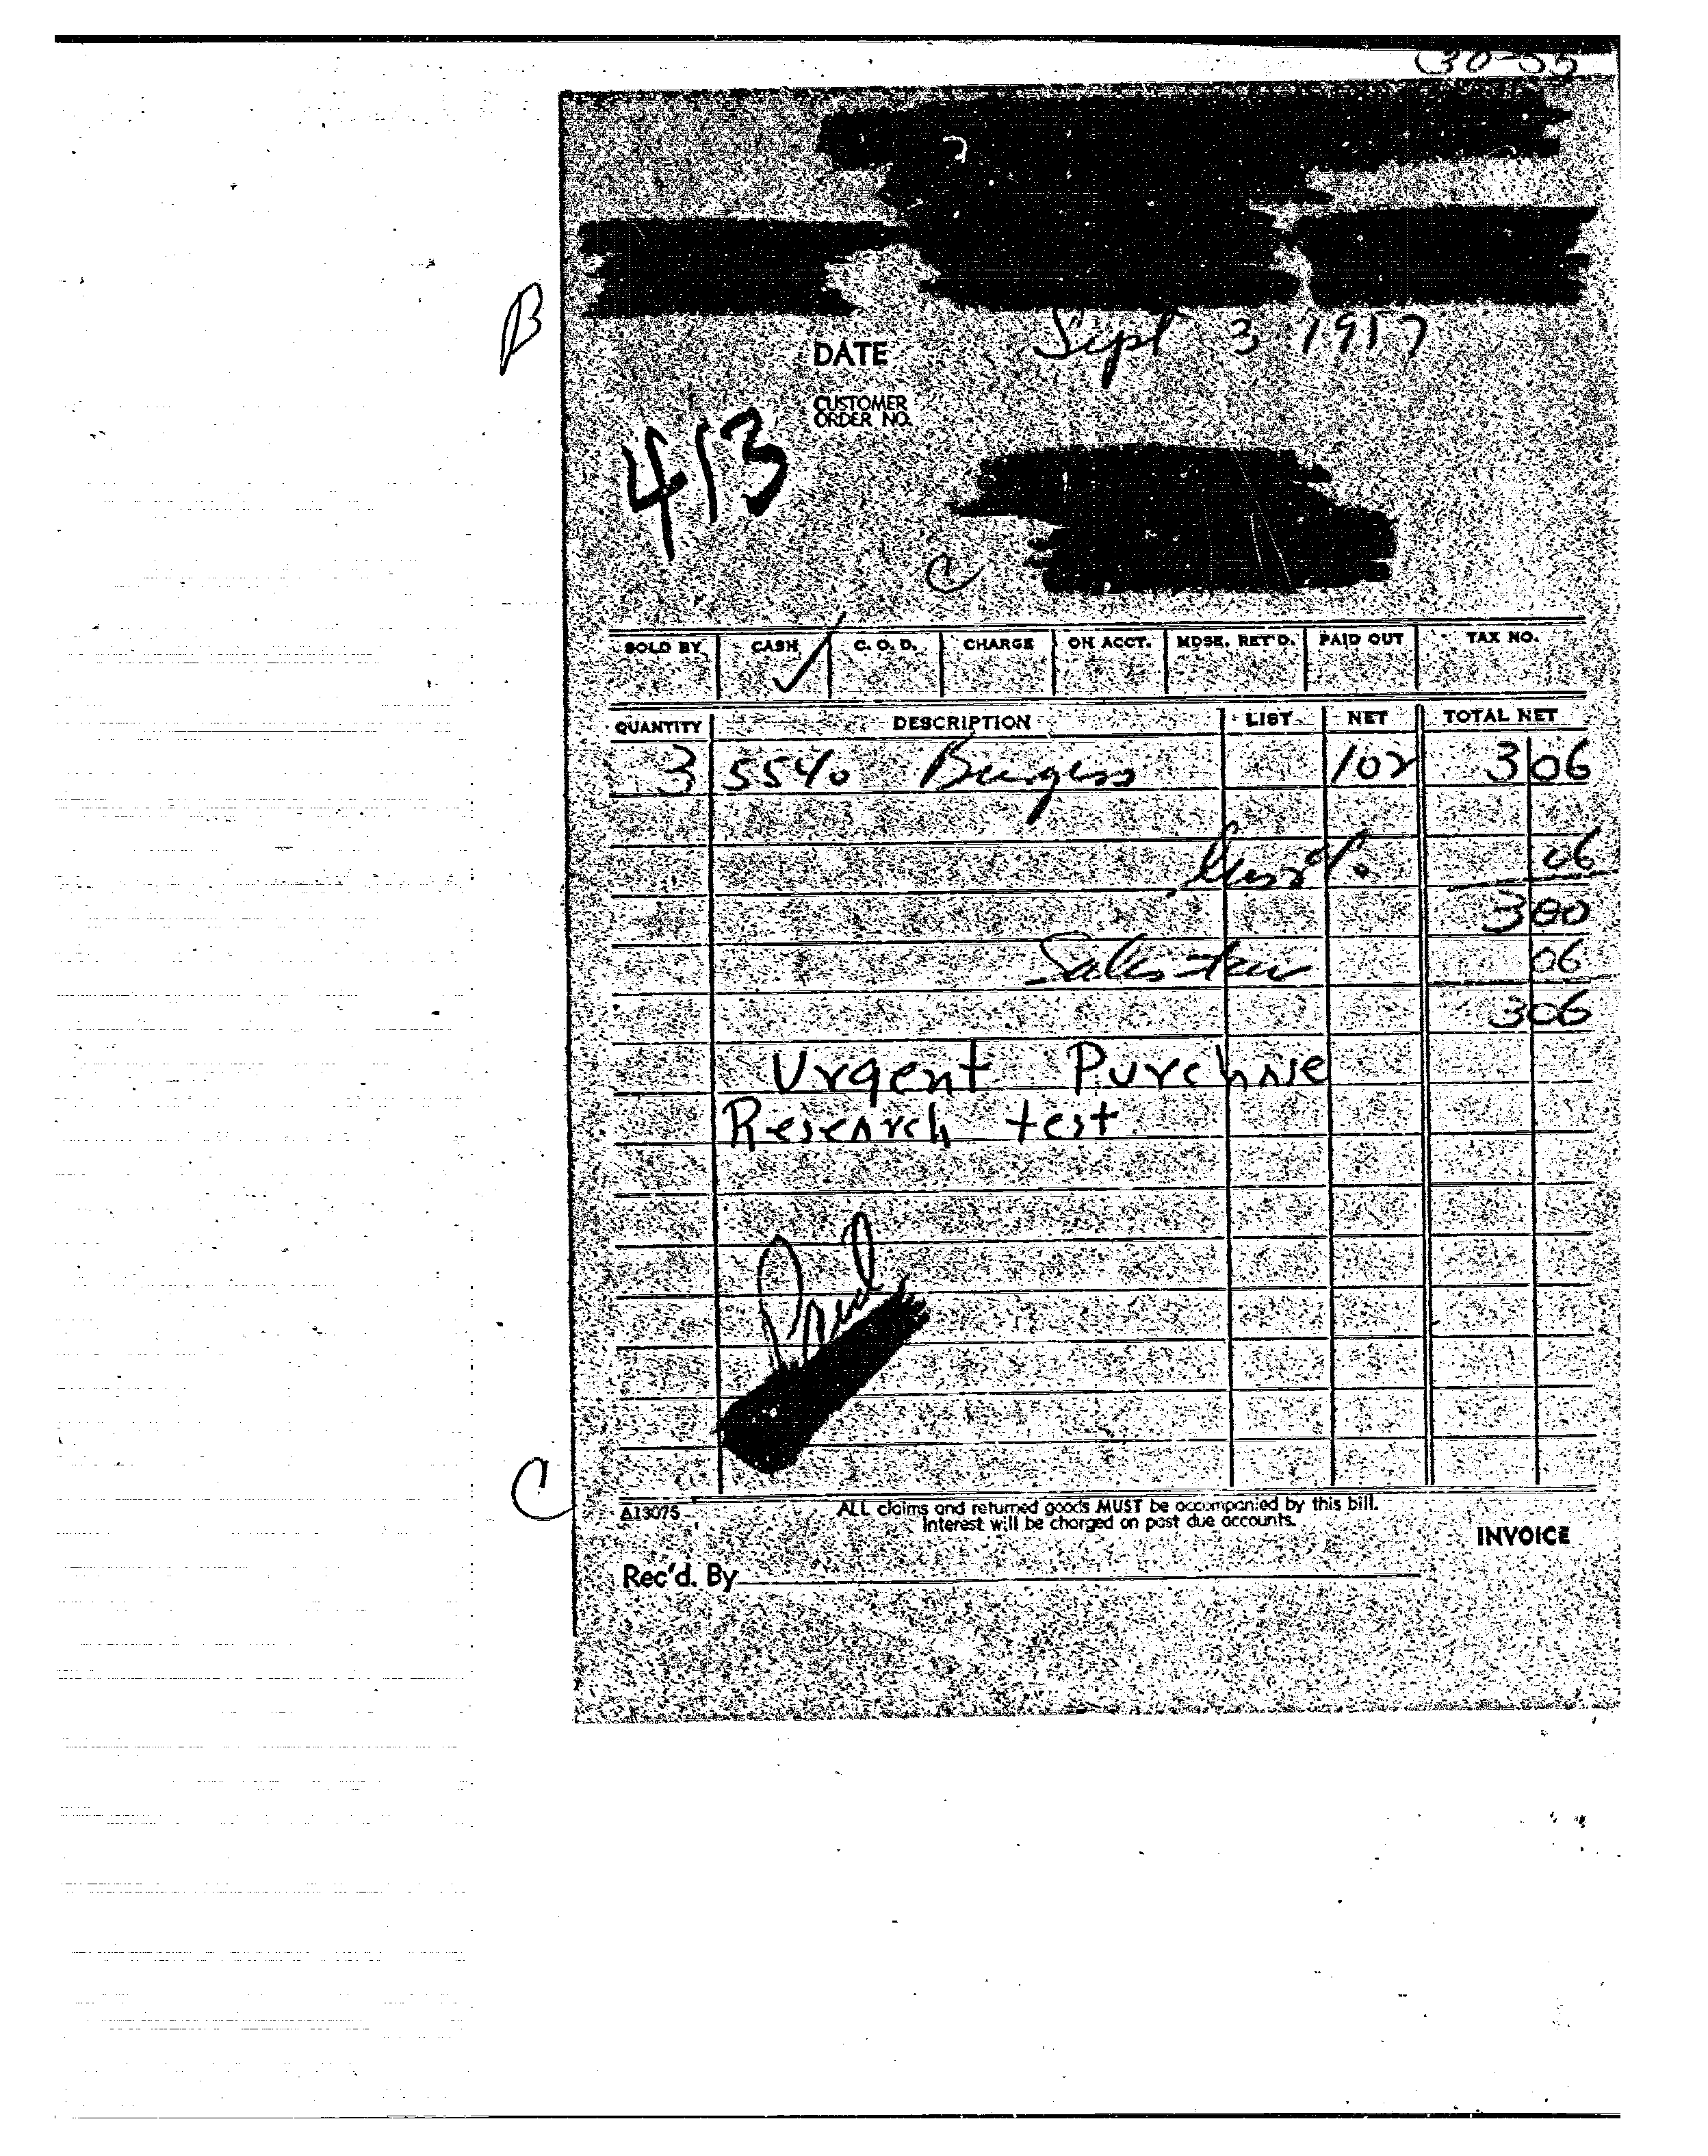 30-55
B
Sept 3 1957
DATE
CUSTOMER
ORDER NO.
413
C
SOLD BY CASH ✓ C. O. D. CHARGE ON ACCT. MDSE. RET'D. PAID OUT TAX NO.
QUANTITY DESCRIPTION LIST NET TOTAL NET
3 5540 Burgess 102 3 06
Less 2% 06
3 00
Sales tax 06
3 06
Urgent Purchase
Research test
Paid
C
A13075 ALL claims and returned goods MUST be accompanied by this bill.
Interest will be charged on past due accounts.
INVOICE
Rec'd. By